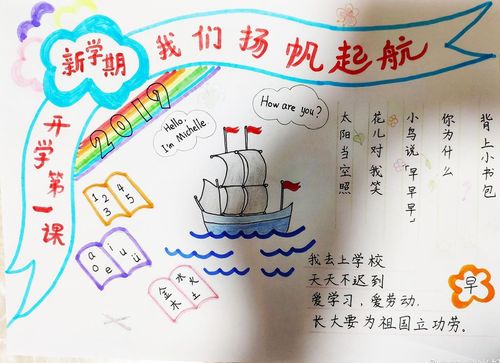 新学期
我们扬帆起航
开学第一课
2019
Hello,
I'm Michelle
How are you?
太阳当空照
花儿对我笑
小鸟说「早早早」
你为什么
背上小书包
1 2 4
3 5
a i u
o e ü
金 水 火
木 土
我去上学校
天天不迟到
爱学习，爱劳动.
长大要为祖国立功劳。
早